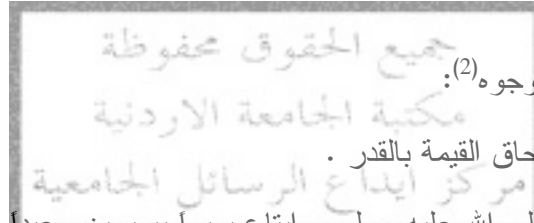 جميع الحقوق محفوظة
وجوه(2):
مكتبة الجامعة الاردنية
حاق القيمة بالقدر .
مركز ايداع الرسائل الجامعية
الله عليه